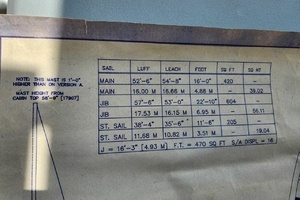 NOTE: THIS MAST IS 1'-0"
HIGHER THAN ON VERSION A.
MAST HEIGHT FROM
CABIN TOP 58'-9" [17907]
SAIL LUFF LEACH FOOT SQ FT SQ MT
MAIN 52'-6" 54'-8" 16'-0" 420 -
MAIN 16.00 M 16.66 M 4.88 M - 39.02
JIB 57'-6" 53'-0" 22'-10" 604 -
JIB 17.53 M 16.15 M 6.95 M - 56.11
ST. SAIL 38'-4" 35'-6" 11'-6" 205 -
ST. SAIL 11.68 M 10.82 M 3.51 M - 19.04
J = 16'-3" [4.93 M] F.T. = 470 SQ FT S/A DISPL = 16